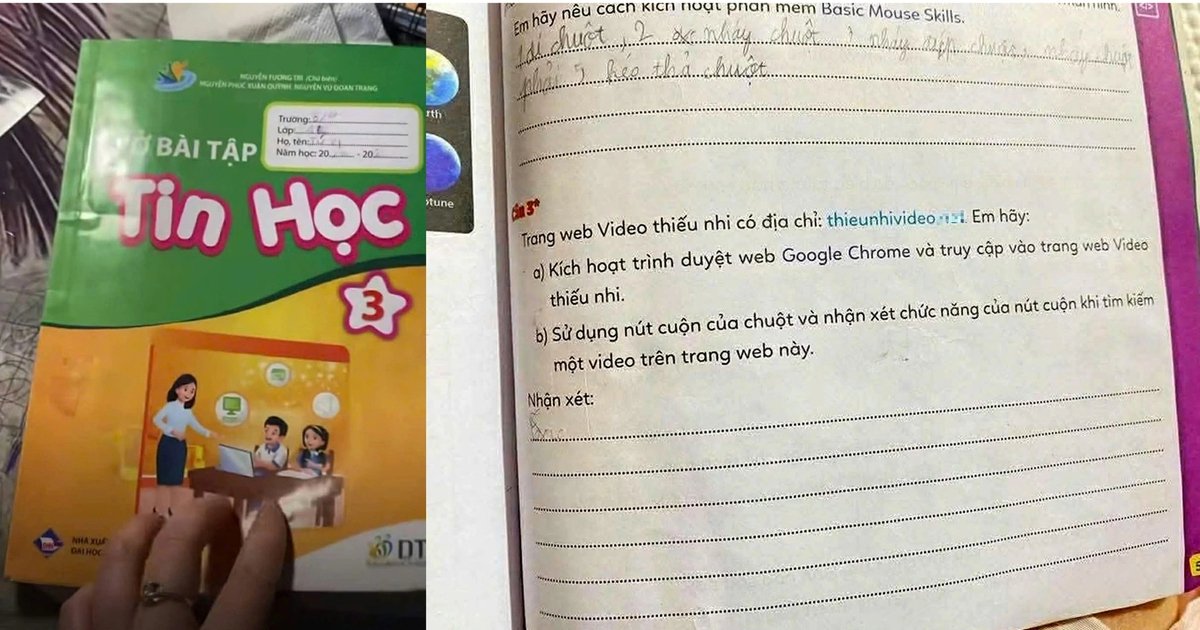 NGUYỄN TƯƠNG TRI (Chủ biên)
NGUYỄN PHÚC XUÂN QUỲNH NGUYỄN VŨ ĐOAN TRANG
Trường:
Lớp:
Họ, tên:
Năm học: 20 - 20
BÀI TẬP
Tin Học
3
NHÀ XUẤ
ĐẠI HỌC
DT
rth
ptune
Em hãy nêu cách kích hoạt phần mềm Basic Mouse Skills.
chuột, 2 nháy chuột nháy nháy
phải 5 kéo thả chuột
Câu 3*
Trang web Video thiếu nhi có địa chỉ: thieunhivideo Em hãy:
a) Kích hoạt trình duyệt web Google Chrome và truy cập vào trang web Video
thiếu nhi.
b) Sử dụng nút cuộn của chuột và nhận xét chức năng của nút cuộn khi tìm kiếm
một video trên trang web này.
Nhận xét:
5